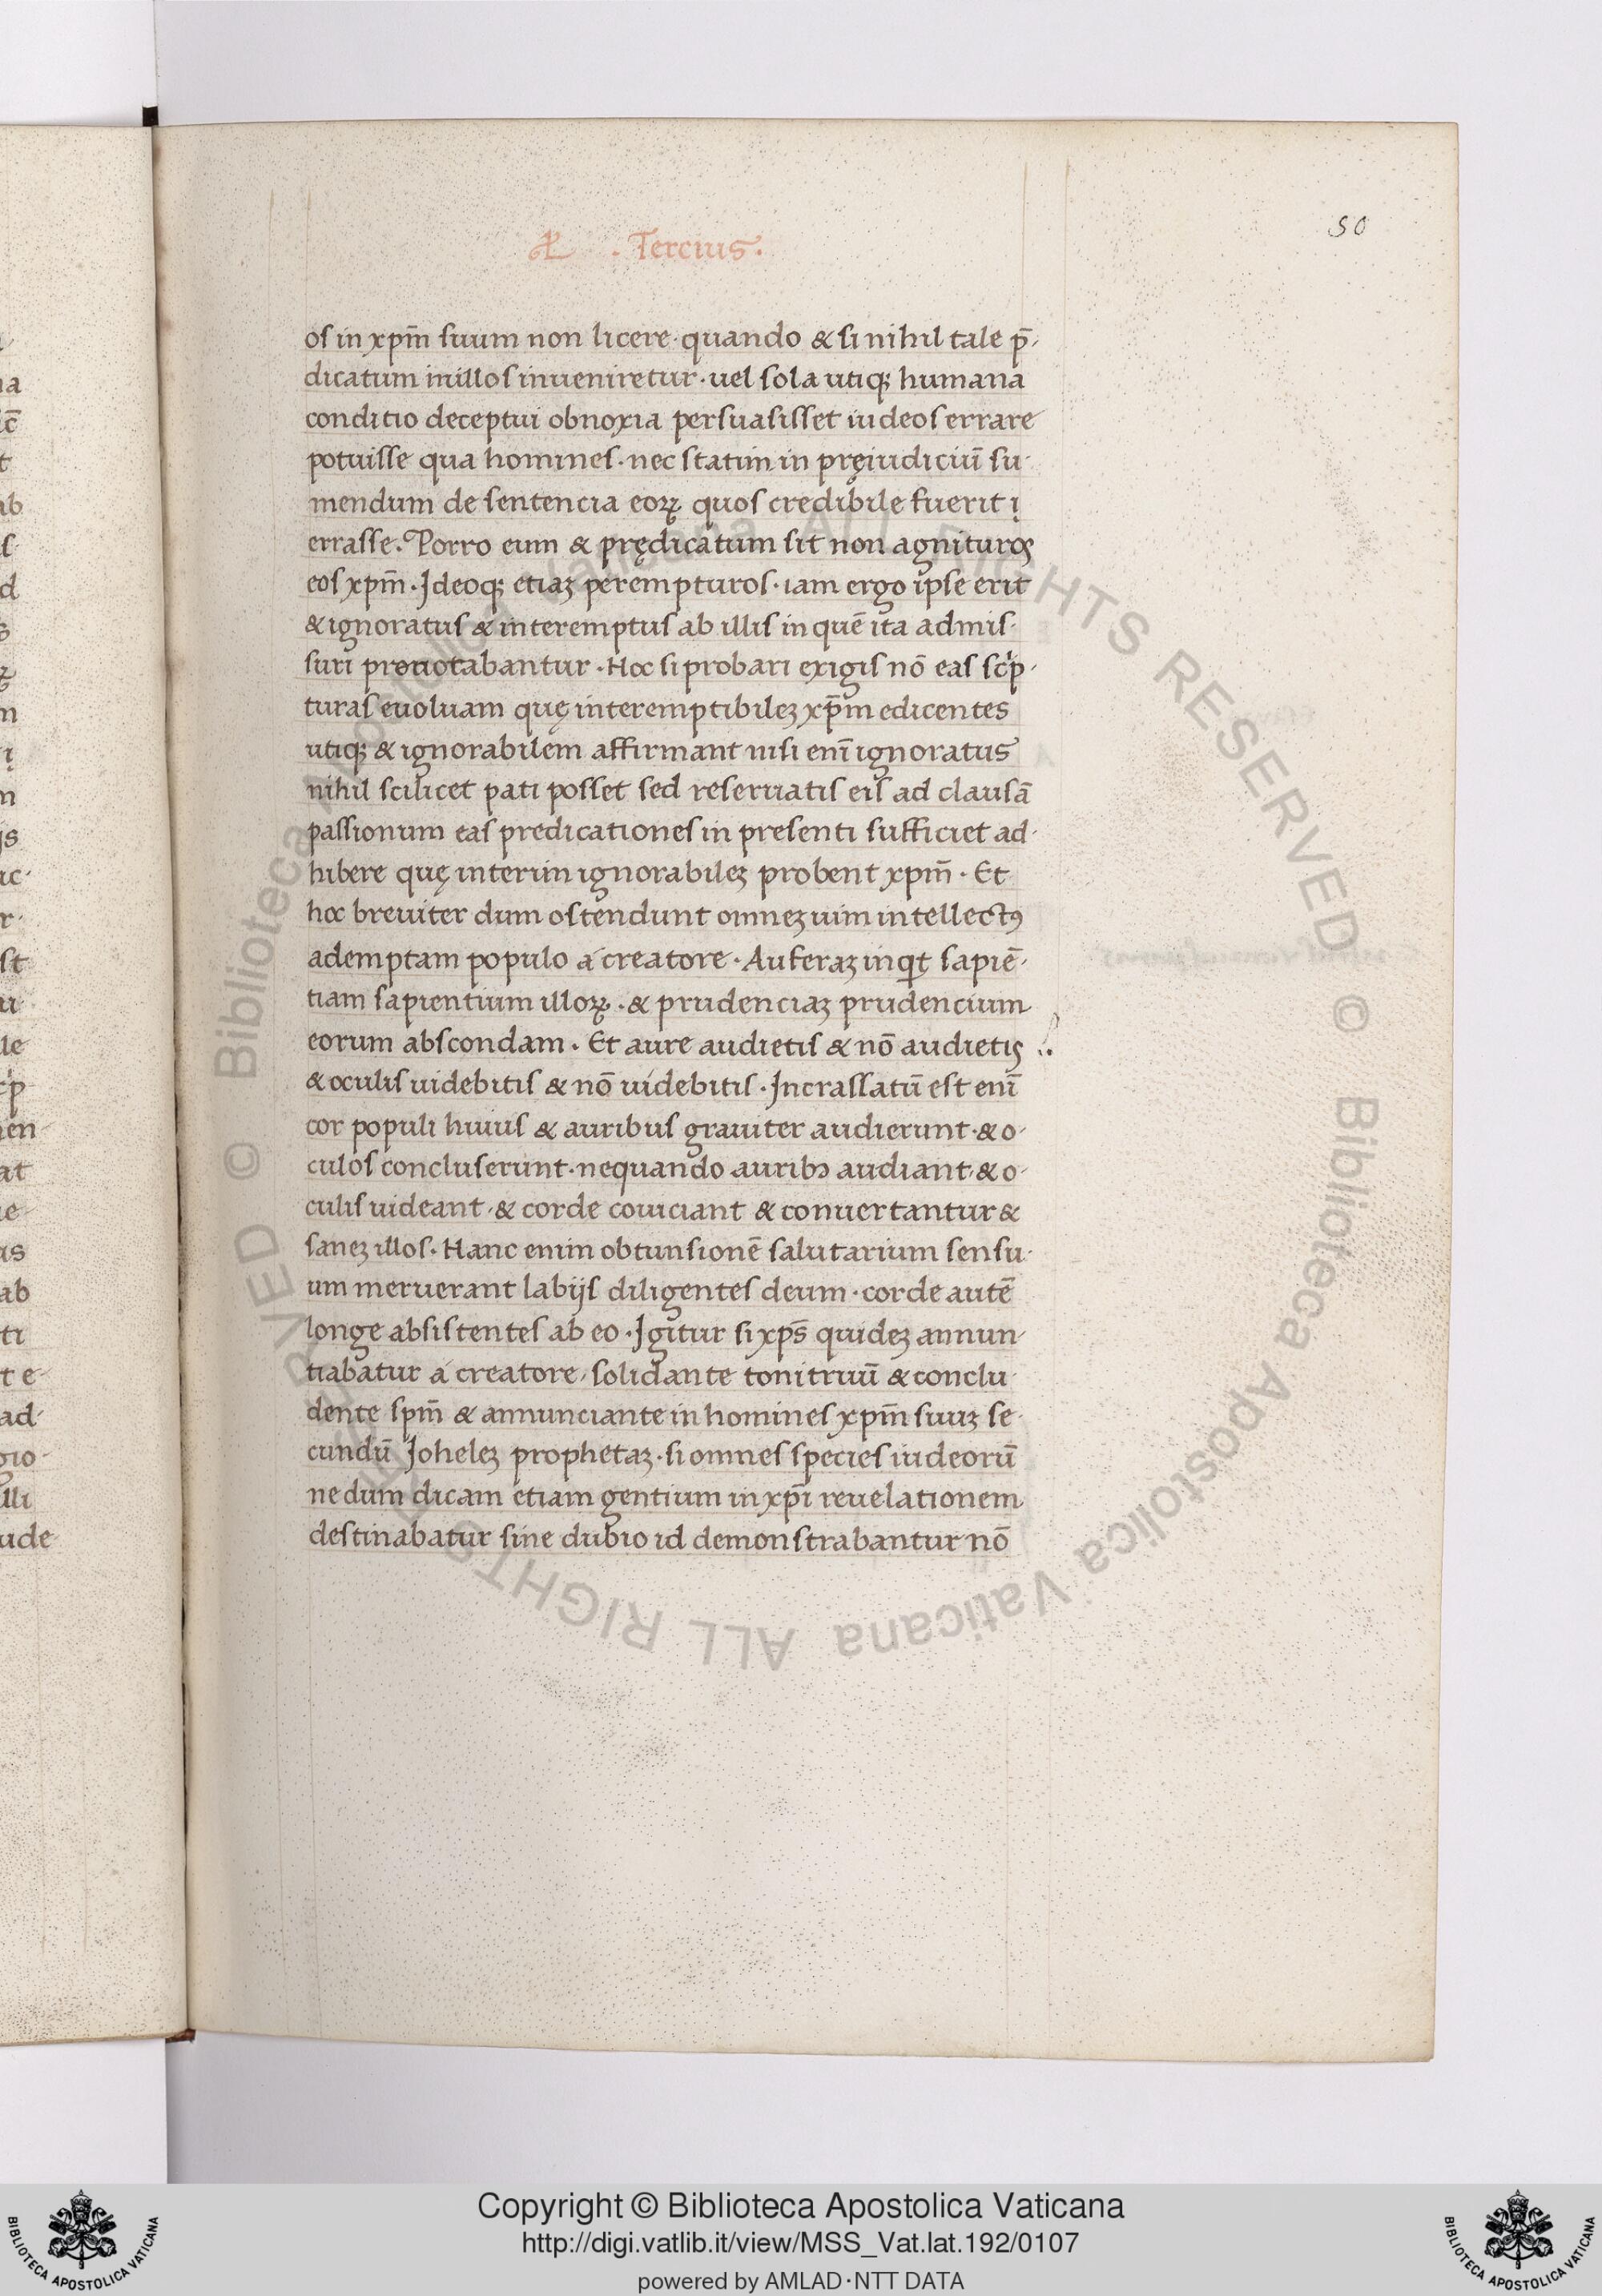 50
. Tercius.
os in xpm̄ suum non licere· quando & si nihil tale p̄-
dicatum in illos inueniretur· uel sola utiqꝫ humana
conditio deceptui obnoxia persuasisset iudeos errare
potuisse qua homines· nec statim in pręiudiciū su-
mendum de sentencia eoꝝ quos credibile fuerit į
errasse. Porro eum & prędicatum sit non agnituros
eos xpm̄· Ideoqꝫ etiaꝫ perempturos· iam ergo ipse erit
& ignoratus & interemptus ab illis in quē ita admis-
suri pronotabantur· Hoc si probari exigis nō eas sc'p-
turas euoluam quę interemptibileꝫ xp̄m edicentes
utiqꝫ & ignorabilem affirmant nisi enī ignoratus
nihil scilicet pati posset sed reseruatis eis ad clausā
passionum eas predicationes in presenti sufficiet ad-
hibere quę interim ignorabileꝫ probent xpm̄· Et
hoc breuiter dum ostendunt omneꝫ uim intellectꝯ
ademptam populo a creatore· Auferaꝫ inqt sapiē-
tiam sapientium illoꝝ· & prudenciaꝫ prudencium
eorum abscondam· Et aure audietis & nō audietis
& oculis uidebitis & nō uidebitis· Incrassatū est enī
cor populi huius & auribus grauiter audierunt· & o-
culos concluserunt· nequando auribꝫ audiant· & o-
culis uideant· & corde coniciant & conuertantur &
saneꝫ illos· Hanc enim obtunsionē salutarium sensu-
um meruerant labijs diligentes deum· corde autē
longe absistentes ab eo· Igitur si xps̄ quideꝫ annun-
tiabatur a creatore, solidante tonitruū & conclu-
dente spm̄ & annunciante in homines xpm̄ suuꝫ se-
cundū Joheleꝫ prophetaꝫ· si omnes species iudeorū
ne dum dicam etiam gentium in xpī reuelationem
destinabatur sine dubio id demonstrabantur nō
© Biblioteca Apostolica Vaticana ALL RIGHTS RESERVED © Biblioteca Apostolica Vaticana ALL RIGHTS RESERVED
Copyright © Biblioteca Apostolica Vaticana
http://digi.vatlib.it/view/MSS_Vat.lat.192/0107
powered by AMLAD·NTT DATA
BIBLIOTECA APOSTOLICA VATICANA
BIBLIOTECA APOSTOLICA VATICANA